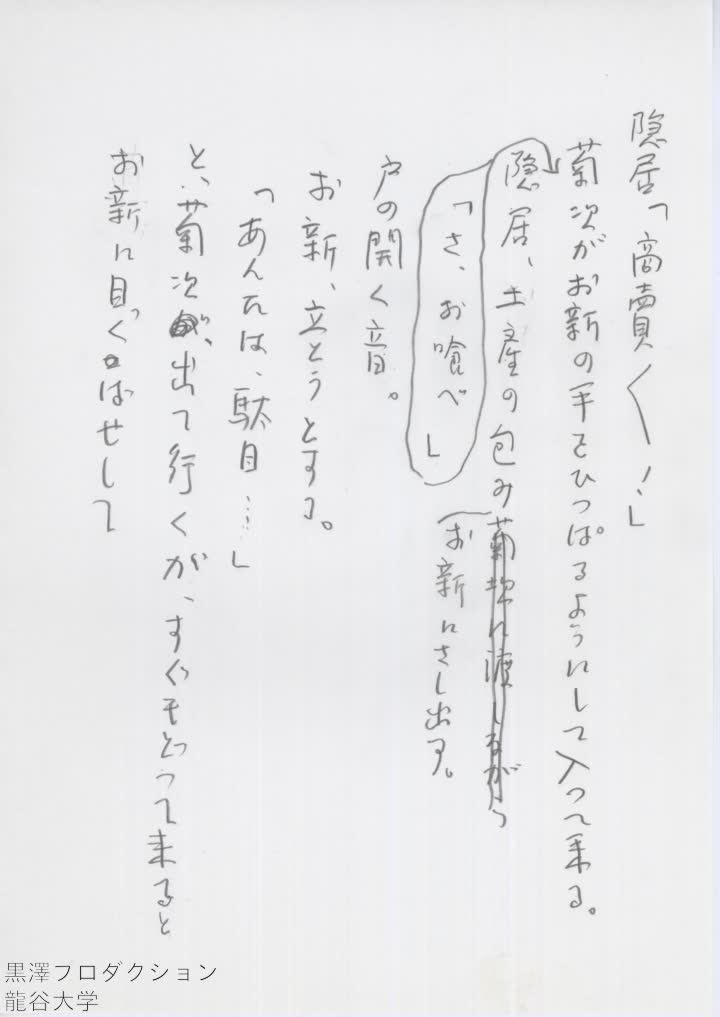 隠居「商賣〱！」
菊次がお新の手をひっぱるようにして入って来る。
隠居、土産の包み菊次に渡しながら
お新にさし出す。
「さ、お喰べ」
戸の開く音。
お新、立とうとする。
「あんたは、駄目…」
と、菊次、出て行くが、すぐもどって来ると
お新に目くばせして
黒澤プロダクション
龍谷大学